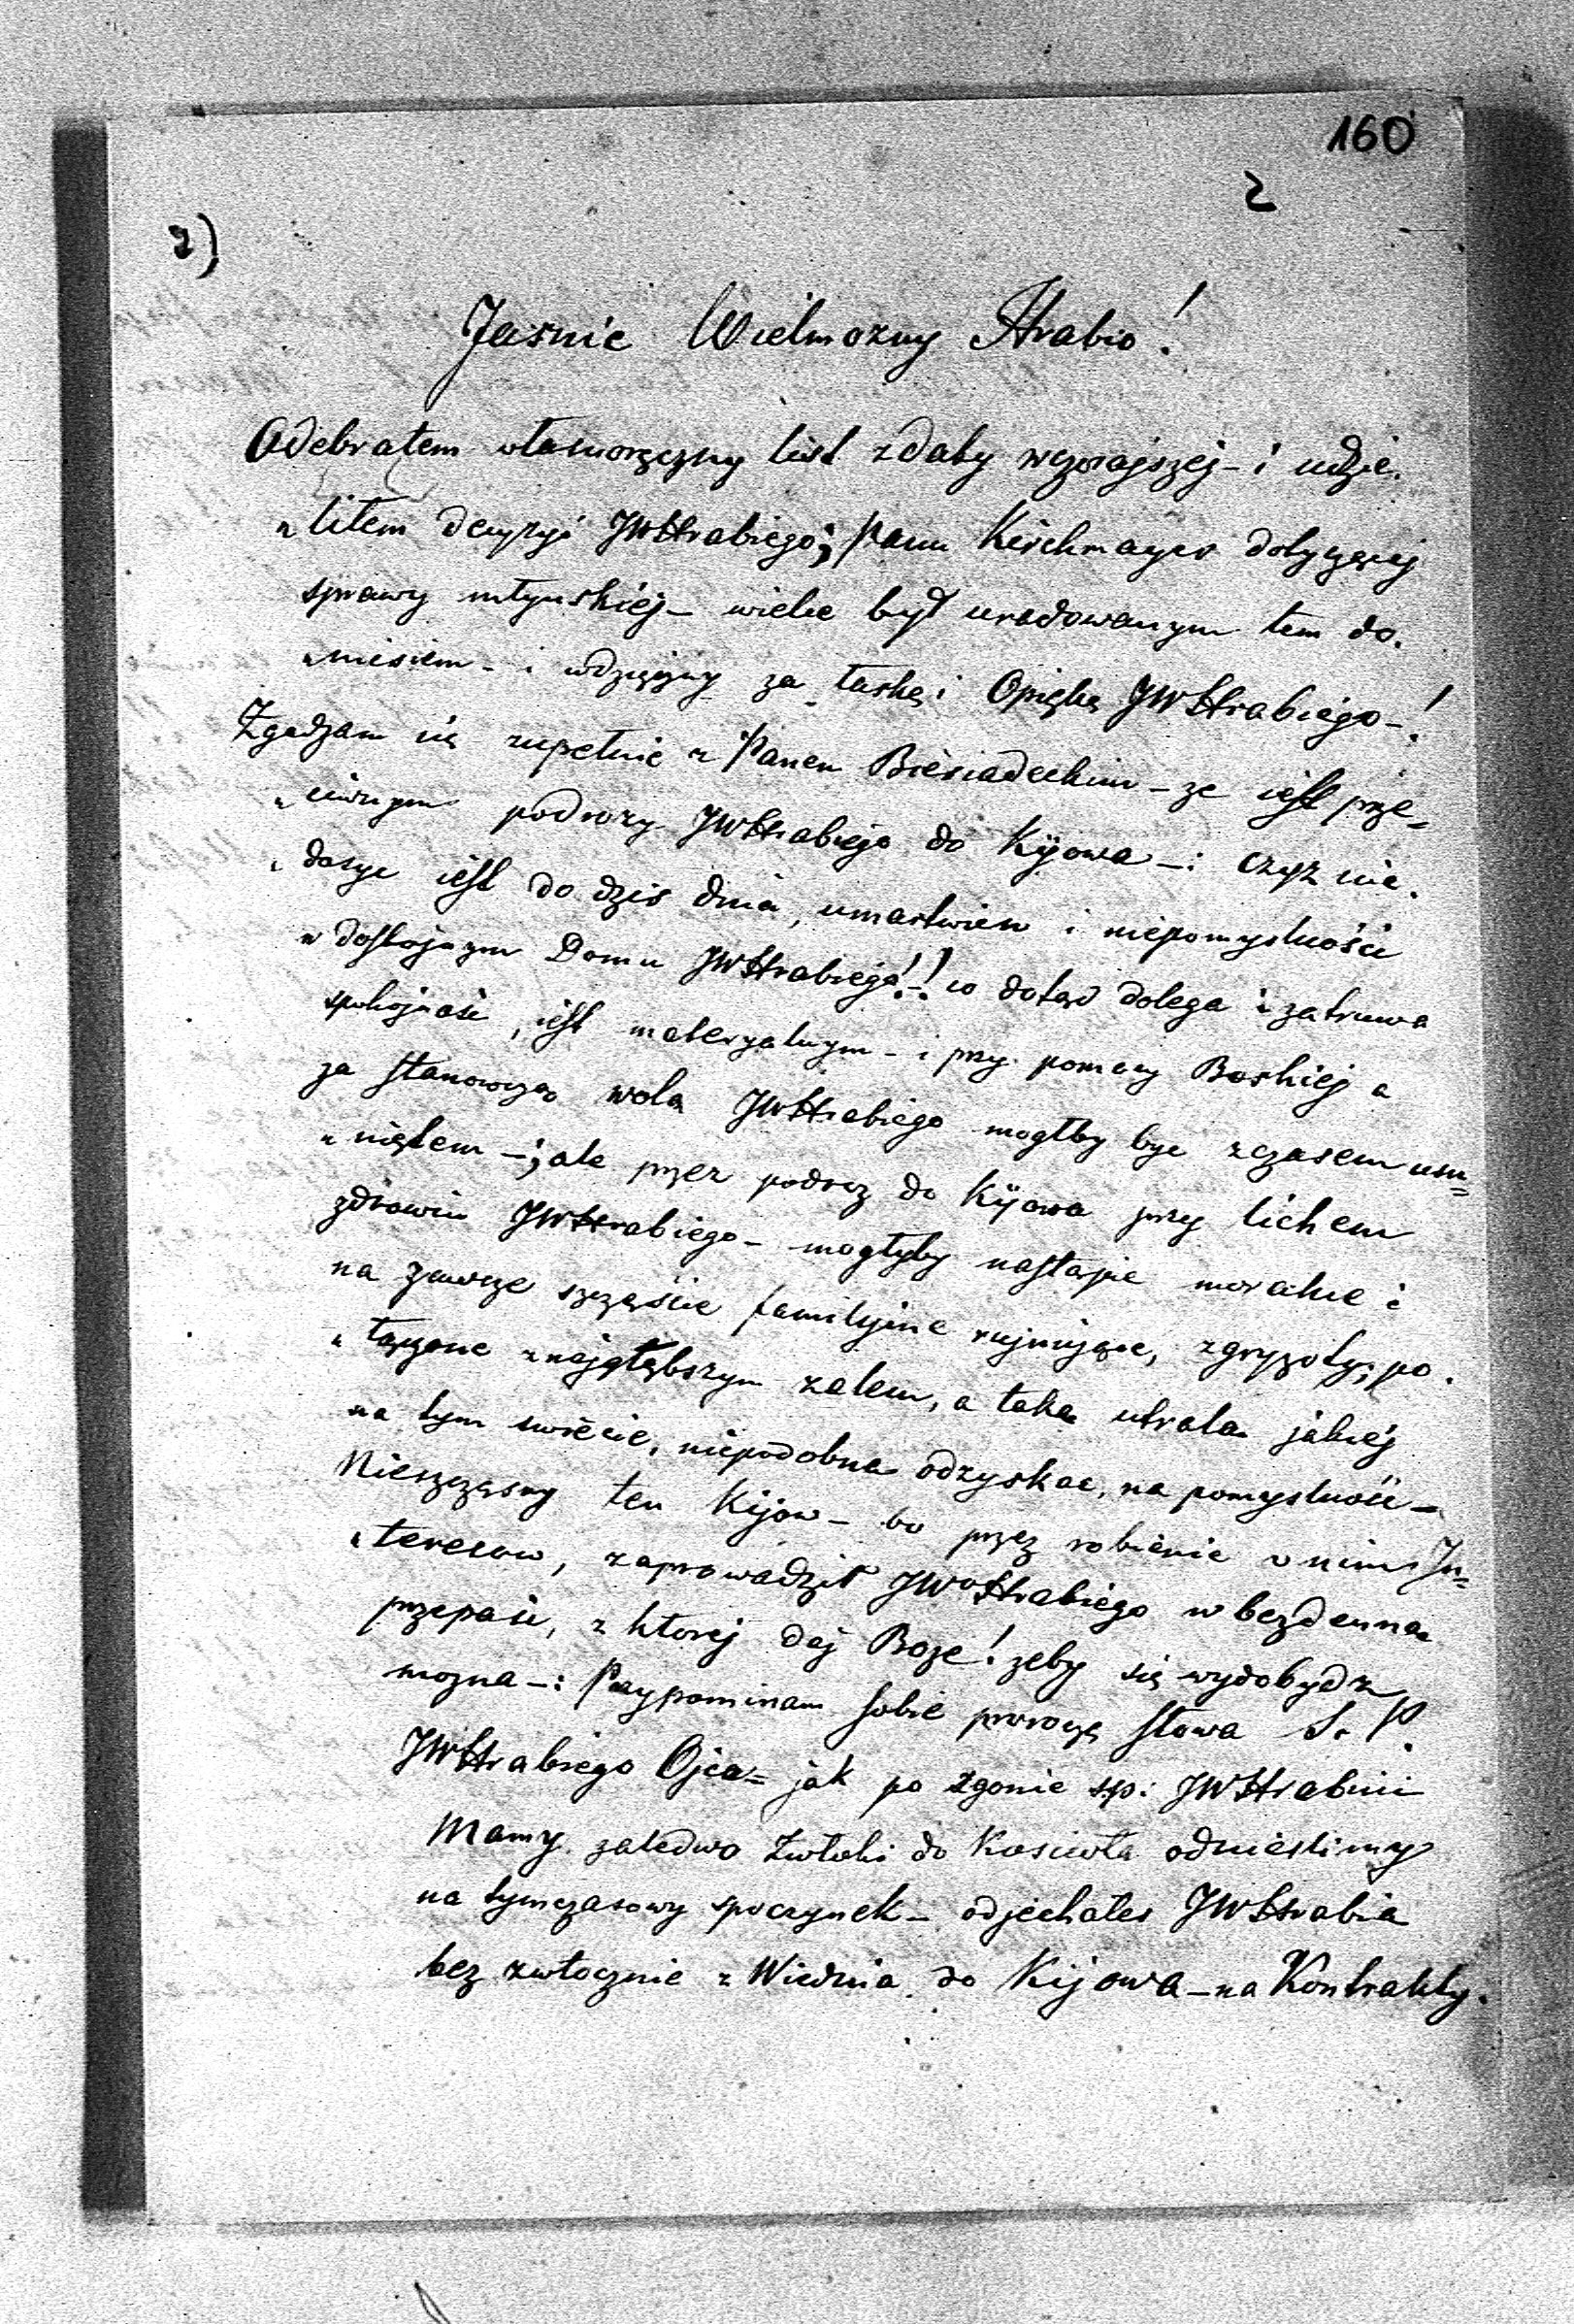 160
2
2)
Jasnie Wielmozny Hrabio!
Odebrałem własnoręczny list z daty wczorajszej - i udzie-
"liłem decyzyi JWHrabiego; Panu Kirchmayer dotyczącej
sprawy młynskiej - wielce był uradowanym tem do-
"niesiem - i wdzięczny za łaskę i Opiekę JWHrabiego -!
Zgadzam się zupełnie z Panem Biesiadeckim - ze iest prze=
"ciwnym podrozy JWHrabiego do Kijowa -: Czyz nie-
"dosyc iest do dzis dnia, umartwien i niepomyslności
w dostojnym Domu JWHrabiego!-! co dotąd dolega i zatruwa
spokojnosc, iest materyalnym - i przy pomocy Boskiej a
za stanowczą wolą JWHrabiego mogłby byc z czasem usu=
"niętem -; ale przez podroz do Kijowa przy lichem
zdrowiu JWHrabiego - mogłyby nastąpic moralne i
na zawsze szczęście familijne rujnujące, zgryzoty; po-
"łączone z najgłębszym zalem, a taka utrata jakiej
na tym swiecie, niepodobna odzyskac, na pomyslności -
Nieszczęsny ten Kijow - bo przez robienie w nim In=
"teresow, zaprowadził JWHrabiego w bezdenna
przepasc, z ktorej daj Boze! zeby się wydobydz
mozna -: Przypominam sobie prorocze słowa S. P.
JWHrabiego Ojca = jak po zgonie s.p: JWHrabini
Mamy zaledwo Zwłoki do Koscioła odniesliśmy
na tymczasowy spoczynek - odjechałes JWHrabia
bez zwłocznie z Wiednia do Kijowa - na Kontrakty.